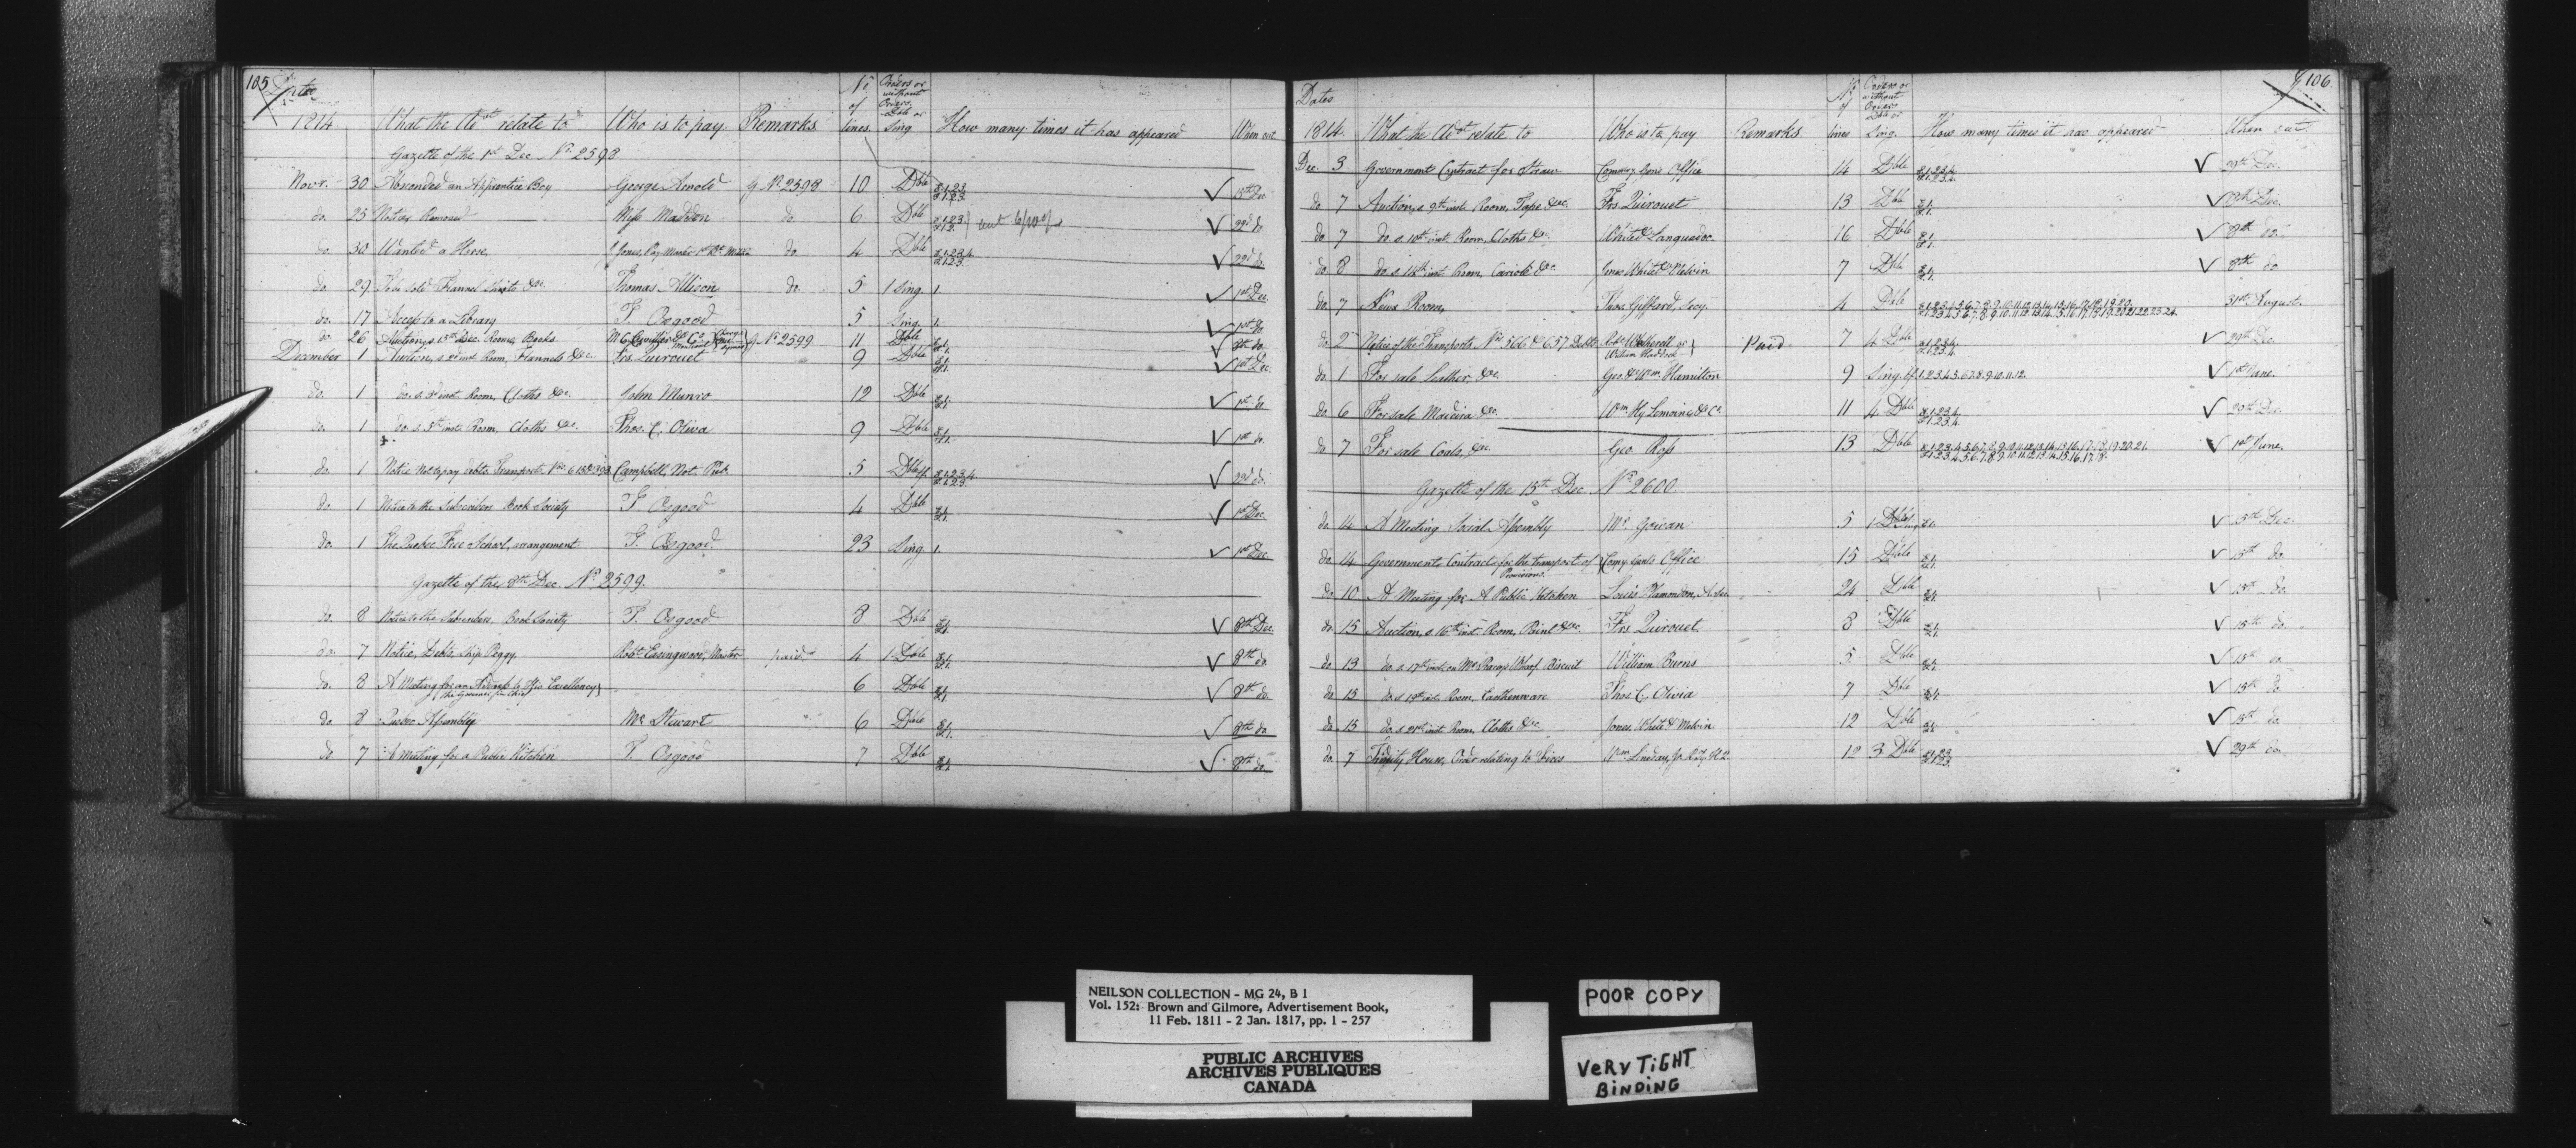 105
Dates
1814 What the Advt relate to Who is to pay Remarks No of lines Orders or without Orders Dble or Sing How many times it has appeared When out
Gazette of the 1st Dec. No. 2598
Novr. 30 Absconded an Apprentice Boy George Arnold g No. 2598 10 Dble 1.2.3. 15th Dec.
do. 25 Notice Removed Miss Maddon do 6 Dble 1.2.3. 22d do
do. 30 Wanted a Horse, J. Jones, Pay Master 1st Bn do 4 Dble 1.2.3.4. 22d do.
do 29 To be sold Flannel Shirts &c. Thomas Allison do 5 1 Sing. 1. 1st Dec.
do. 17 Access to a Library T. Osgood 5 Sing. 1. 1st do
do 26 Auction, s 13th Dec. Room, Books & Co. g No. 2599 11 Dble 8th do
December 1 Auction, s 2d inst. Room, Flannels &c. Frs. Quirouet 9 Dble 1st Dec.
do. 1 do. s. 3d inst. Room, Cloths &c. John Munro 12 Dble 1st do
do. 1 do. s. 5th inst. Room, Cloths &c. Thos. C. Oliva 9 Dble 1st do.
do. 1 Notice not to pay debts Transports Nos. Campbell, Not. Pub. 5 Dble 1.2.3.4 22d do.
do. 1 Notice to the Subscribers Book Society T. Osgood 4 Dble 1st Dec.
do. 1 The Quebec Free School, arrangement T. Osgood. 23 Sing. 1. 1st Dec.
Gazette of the 8th Dec. No. 2599.
do. 8 Notice to the Subscribers, Book Society T. Osgood 8 Dble 8th Dec.
do 7 Notice, Debts, Ship Peggy Robt. Easingwood, Master paid 4 1 Dble 8th do
do. 8 A Meeting for an Address to His Excellency 6 Dble 8th do.
do 8 Quebec Assembly Mr. Stewart 6 Dble 8th do
do 7 A Meeting for a Public Kitchen T. Osgood 7 Dble 8th do
106
Dates
1814 What the Advt relate to Who is to pay Remarks No of lines Orders or without Orders Dble or Sing. How many times it has appeared When out
Dec. 3 Government Contract for Straw Commy. Gen's Office 14 Dble 1.2.3.4. 29th Dec.
do 7 Auction, s 9th inst. Room, Tape &c. Frs. Quirouet 13 Dble 8th Dec.
do 7 do. s 10th inst. Room, Cloths &c. White & Languedoc. 16 Dble 8th do.
do 8 do. s 14th inst. Room, Cariole &c. Jones White & Melvin 7 Dble 8th do
do. 7 News Room, Thos. Giffard, Secy. 4 Dble 31st August.
do 2 Notice of the Transports Nos. 566 & 657 Debts Robt. Wetherall or William Haddock Paid 7 4 Dble 1.2.3.4. 29th Dec.
do 1 For sale Leather, &c. Geo. & Wm. Hamilton 9 Sing. 1.2.3.4.5.6.7.8.9.10.11.12. 1st June.
do 6 For sale Madeira &c. Wm. Hy. Lemoine & Co. 11 4 Dble 1.2.3.4. 29th Dec.
do 7 For sale Coals, &c. Geo. Ross 13 Dble 1.2.3.4.5.6.7.8.9.10.11.12.13.14.15.16.17.18.19.20.21. 1st June.
Gazette of the 15th Dec. No. 2600
do 14 A Meeting Social Assembly Mr. Gowan 5 15th Dec.
do. 14 Government Contract for the transport of Provisions. Comy. Gen's Office 15 Dble 15th do.
do 10 A Meeting for A Public Kitchen Louis Plamondon, 24 Dble 15th do.
do. 15 Auction, s. 16th inst. Room, &c. Frs. Quirouet. 8 Dble 15th do.
do 13 do. s 17th inst. on Wharf, Biscuit William Burns 5 Dble 15th do
do 15 do. s 19th inst. Room, Earthenware Thos. C. Oliva 7 Dble 15th do
do 15 do. s 21st inst. Room, Cloths &c. Jones, White & Melvin 12 Dble 15th do
do. 7 Trinity House, Order relating to Fires Wm. Lindsay, Jr. 12 3 Dble 1.2.3. 29th do
NEILSON COLLECTION - MG 24, B 1
Vol. 152: Brown and Gilmore, Advertisement Book,
11 Feb. 1811 - 2 Jan. 1817, pp. 1 - 257
PUBLIC ARCHIVES
ARCHIVES PUBLIQUES
CANADA
POOR COPY
VERY TIGHT
BINDING